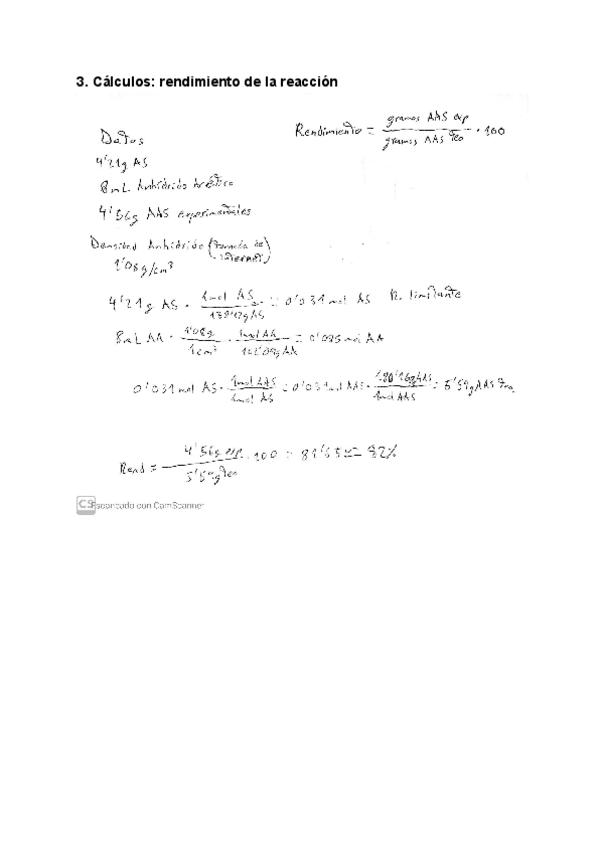 3. Cálculos: rendimiento de la reacción
Rendimiento = gramos AAS exp / gramos AAS teo · 100
Datos
4'21g AS
8mL Anhídrido Acético
4'56g AAS experimentales
Densidad Anhídrido (tomada de internet)
1'08g/cm³
4'21g AS · 1mol AS / 138'12g AS = 0'031 mol AS R. limitante
8mL AA · 1'08g / 1cm³ · 1mol AA / 102'09g AA = 0'085 mol AA
0'031 mol AS · 1mol AAS / 1mol AS = 0'031 mol AAS · 180'16g AAS / 1mol AAS = 5'59g AAS Teo.
Rend = 4'56g exp. / 5'59g Teo · 100 = 82%
CS Escaneado con CamScanner